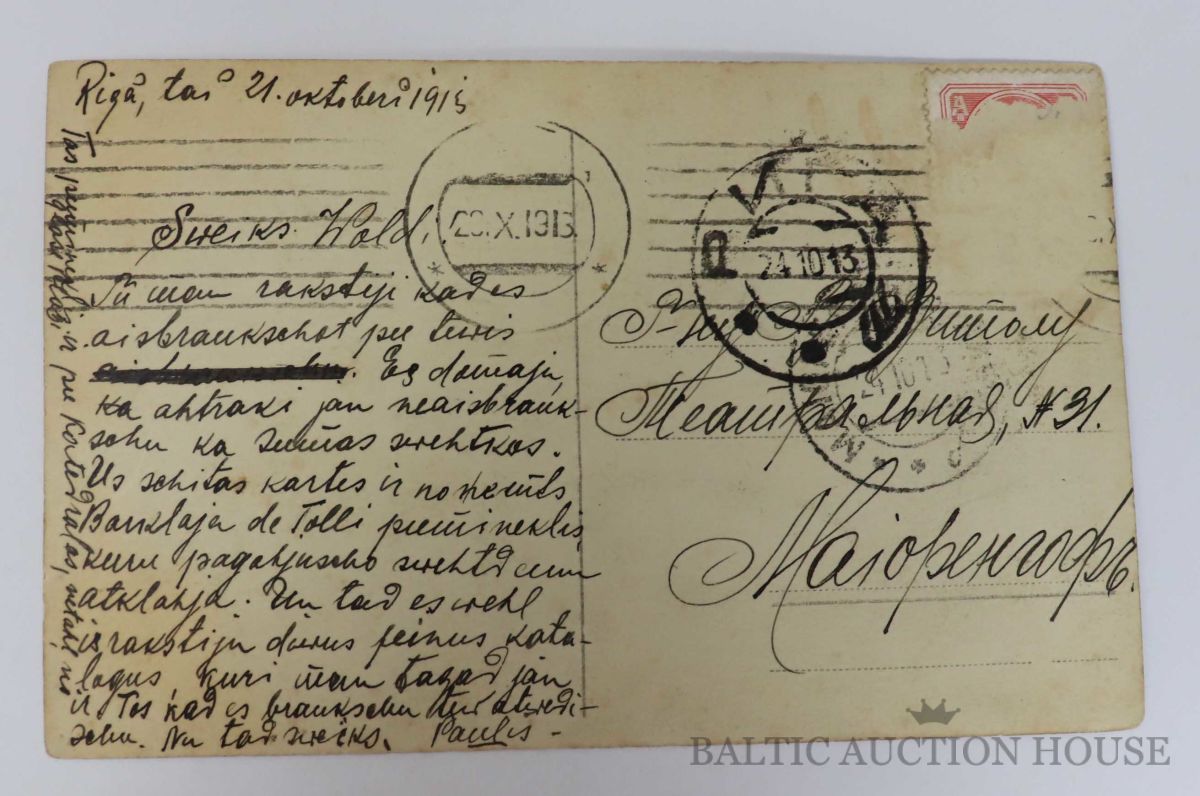 Rigâ, tai 21. oktoberi 1913
Sweiks Wold!
Tu man rakstiji kad es
aisbraukschot pee tewis
. Es domaju,
ka ahtraki jau neaisbrauk-
schu ka seemas swehtkos.
Us schitas kartes ir nonemts
Barklaja de Tolli peemineklis,
kuru pagahjuscho swehtdeenu
atklahja. Un tad es wehl
israkstiju diwus feinus kata-
logus, kuri man tagad jau
ir. Tos kad es braukschu tew atwedi-
schu. Nu tad sweiks. Pauls -
Tas peemineklis ir pee Kated­rales, netahl no
29.X.1913
РИГА
24 10 13
24 10 13
Г-ну
Театральная, № 31.
Маіоренгофъ.
BALTIC AUCTION HOUSE